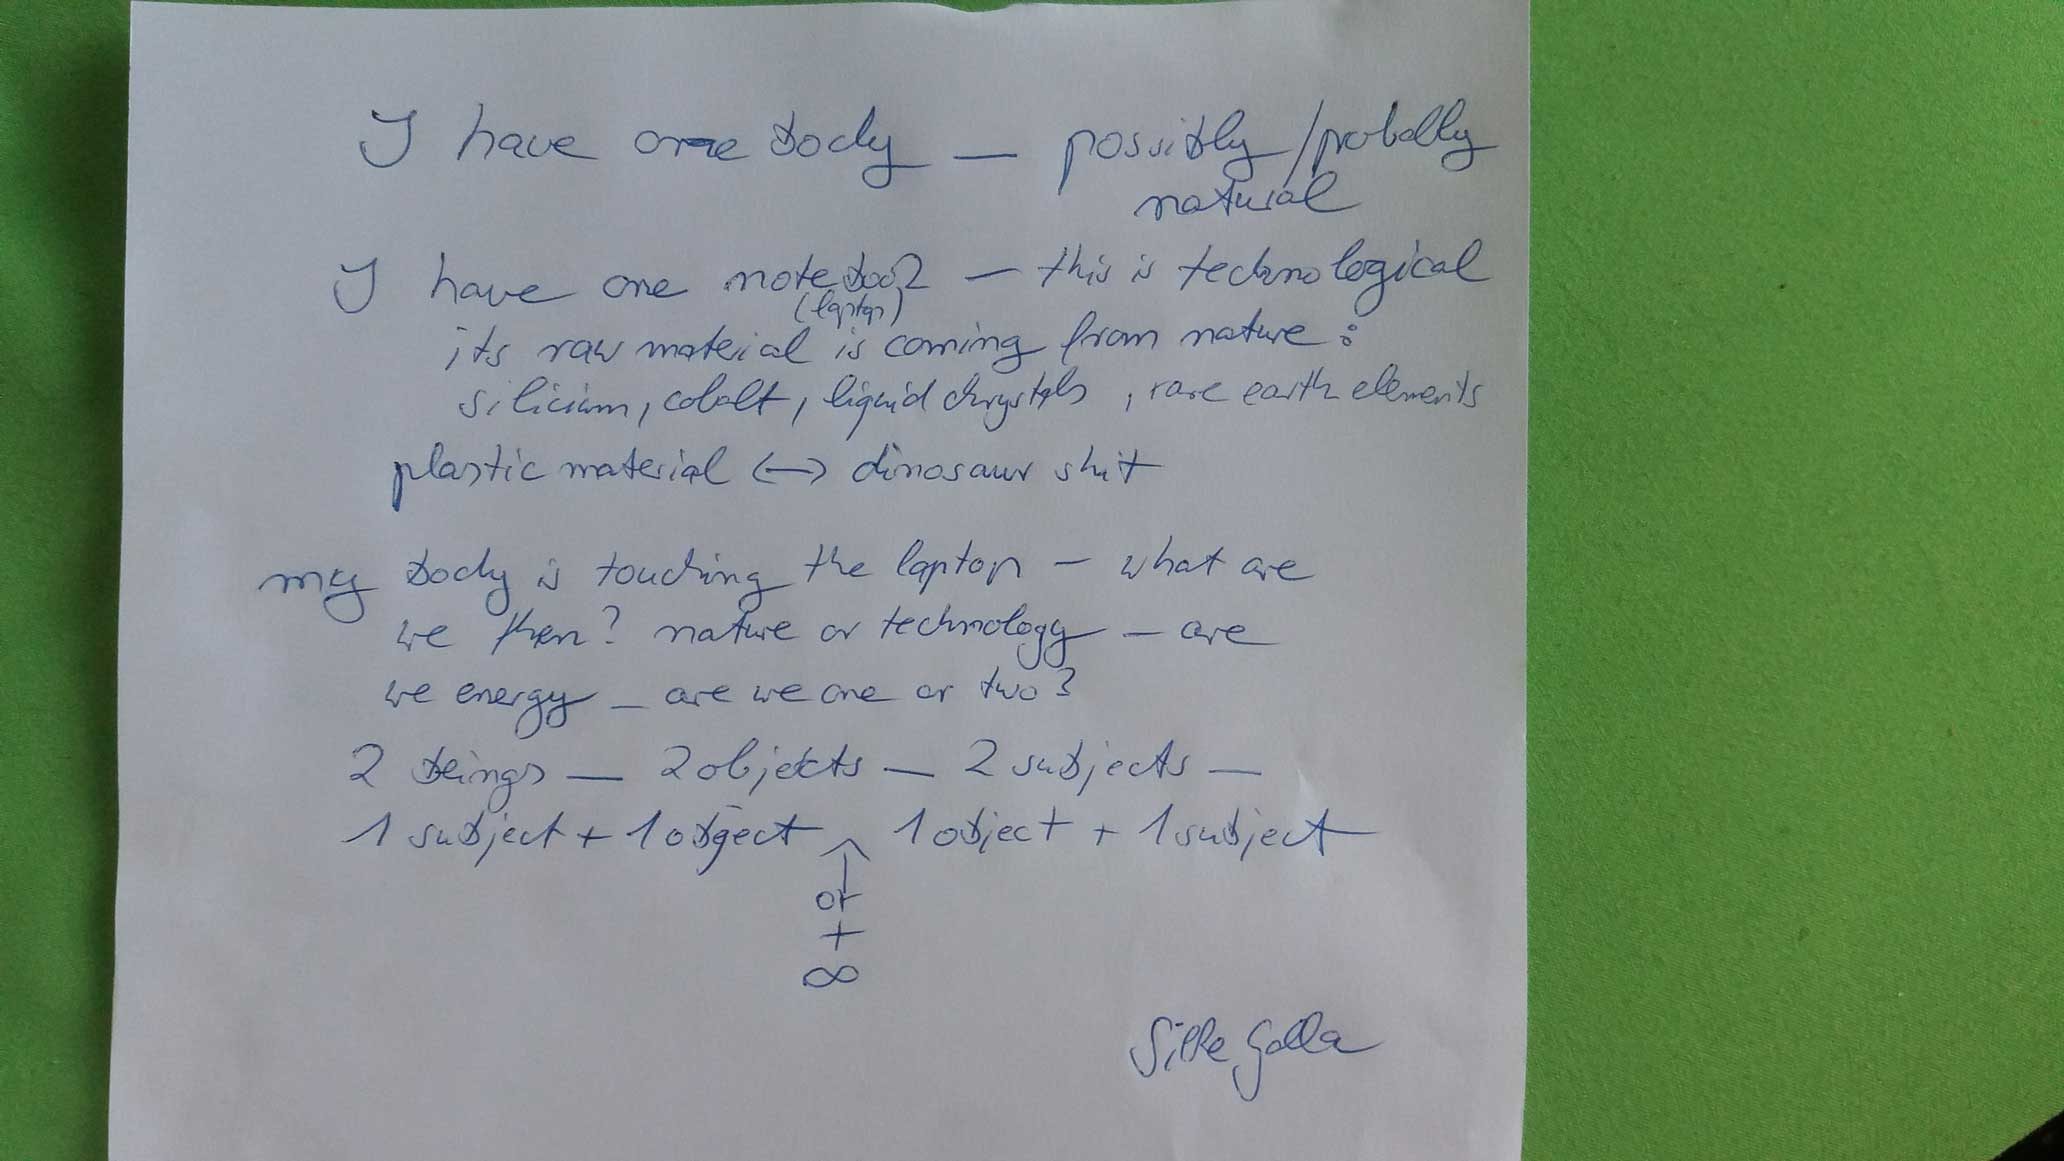 I have one body — possibly/probably
natural
I have one notebook — this is technological
(laptop)
its raw material is coming from nature:
silicium, cobalt, liquid chrystals, rare earth elements
plastic material <—> dinosaur shit
my body is touching the laptop — what are
we then? nature or technology — are
we energy — are we one or two?
2 beings — 2 objekts — 2 subjects —
1 subject + 1 obgect ^ 1 object + 1 subject
or
+
∞
Silke Golla